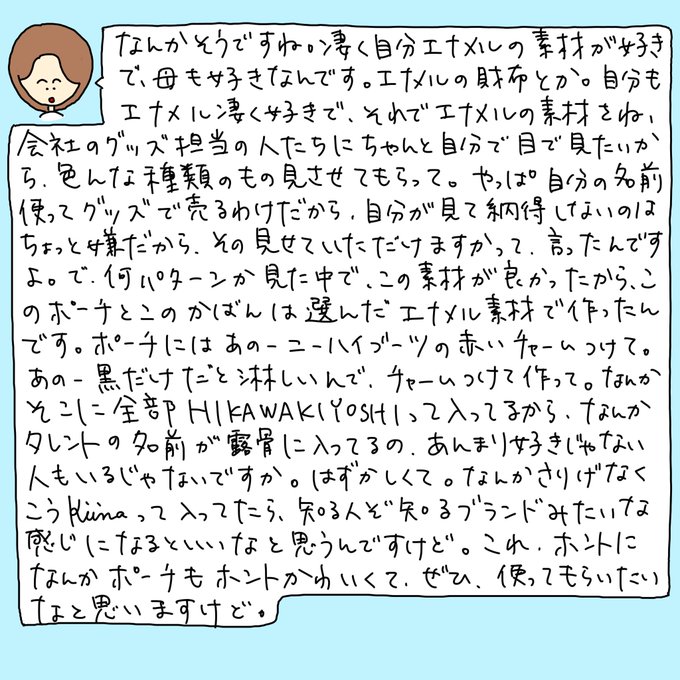 なんかそうですね。凄く自分エナメルの素材が好き
で、母も好きなんです。エナメルの財布とか。自分も
エナメル凄く好きで、それでエナメルの素材をね、
会社のグッズ担当の人たちにちゃんと自分で目で見たいか
ら、色んな種類のもの見させてもらって。やっぱ自分の名前
使ってグッズで売るわけだから、自分が見て納得しないのは
ちょっと嫌だから、その見せていただけますかって、言ったんです
よ。で、何パターンか見た中で、この素材が良かったから、こ
のポーチとこのかばんは選んだエナメル素材で作ったん
です。ポーチにはあのーニーハイブーツの赤いチャームつけて。
あのー黒だけだと淋しいんで、チャームつけて作って。なんか
そこに全部HIKAWAKIYOSHIって入ってるから、なんか
タレントの名前が露骨に入ってるの、あんまり好きじゃない
人もいるじゃないですか。はずかしくて。なんかさりげなく
こうKiinaって入ってたら、知る人ぞ知るブランドみたいな
感じになるといいなと思うんですけど。これ、ホントに
なんかポーチもホントかわいくて、ぜひ、使ってもらいたい
なと思いますけど。